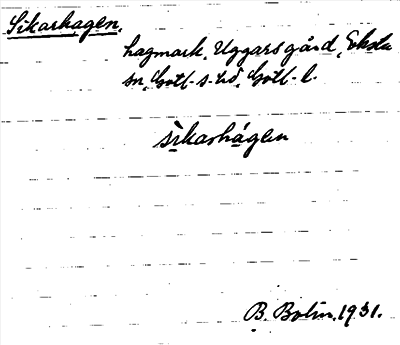 Sikarhagen.
hagmark, Uggarsgård, Eksta
sn, Gotl. s. hd, Gotl. l.
sìkarhágen
B. Bolin. 1931.